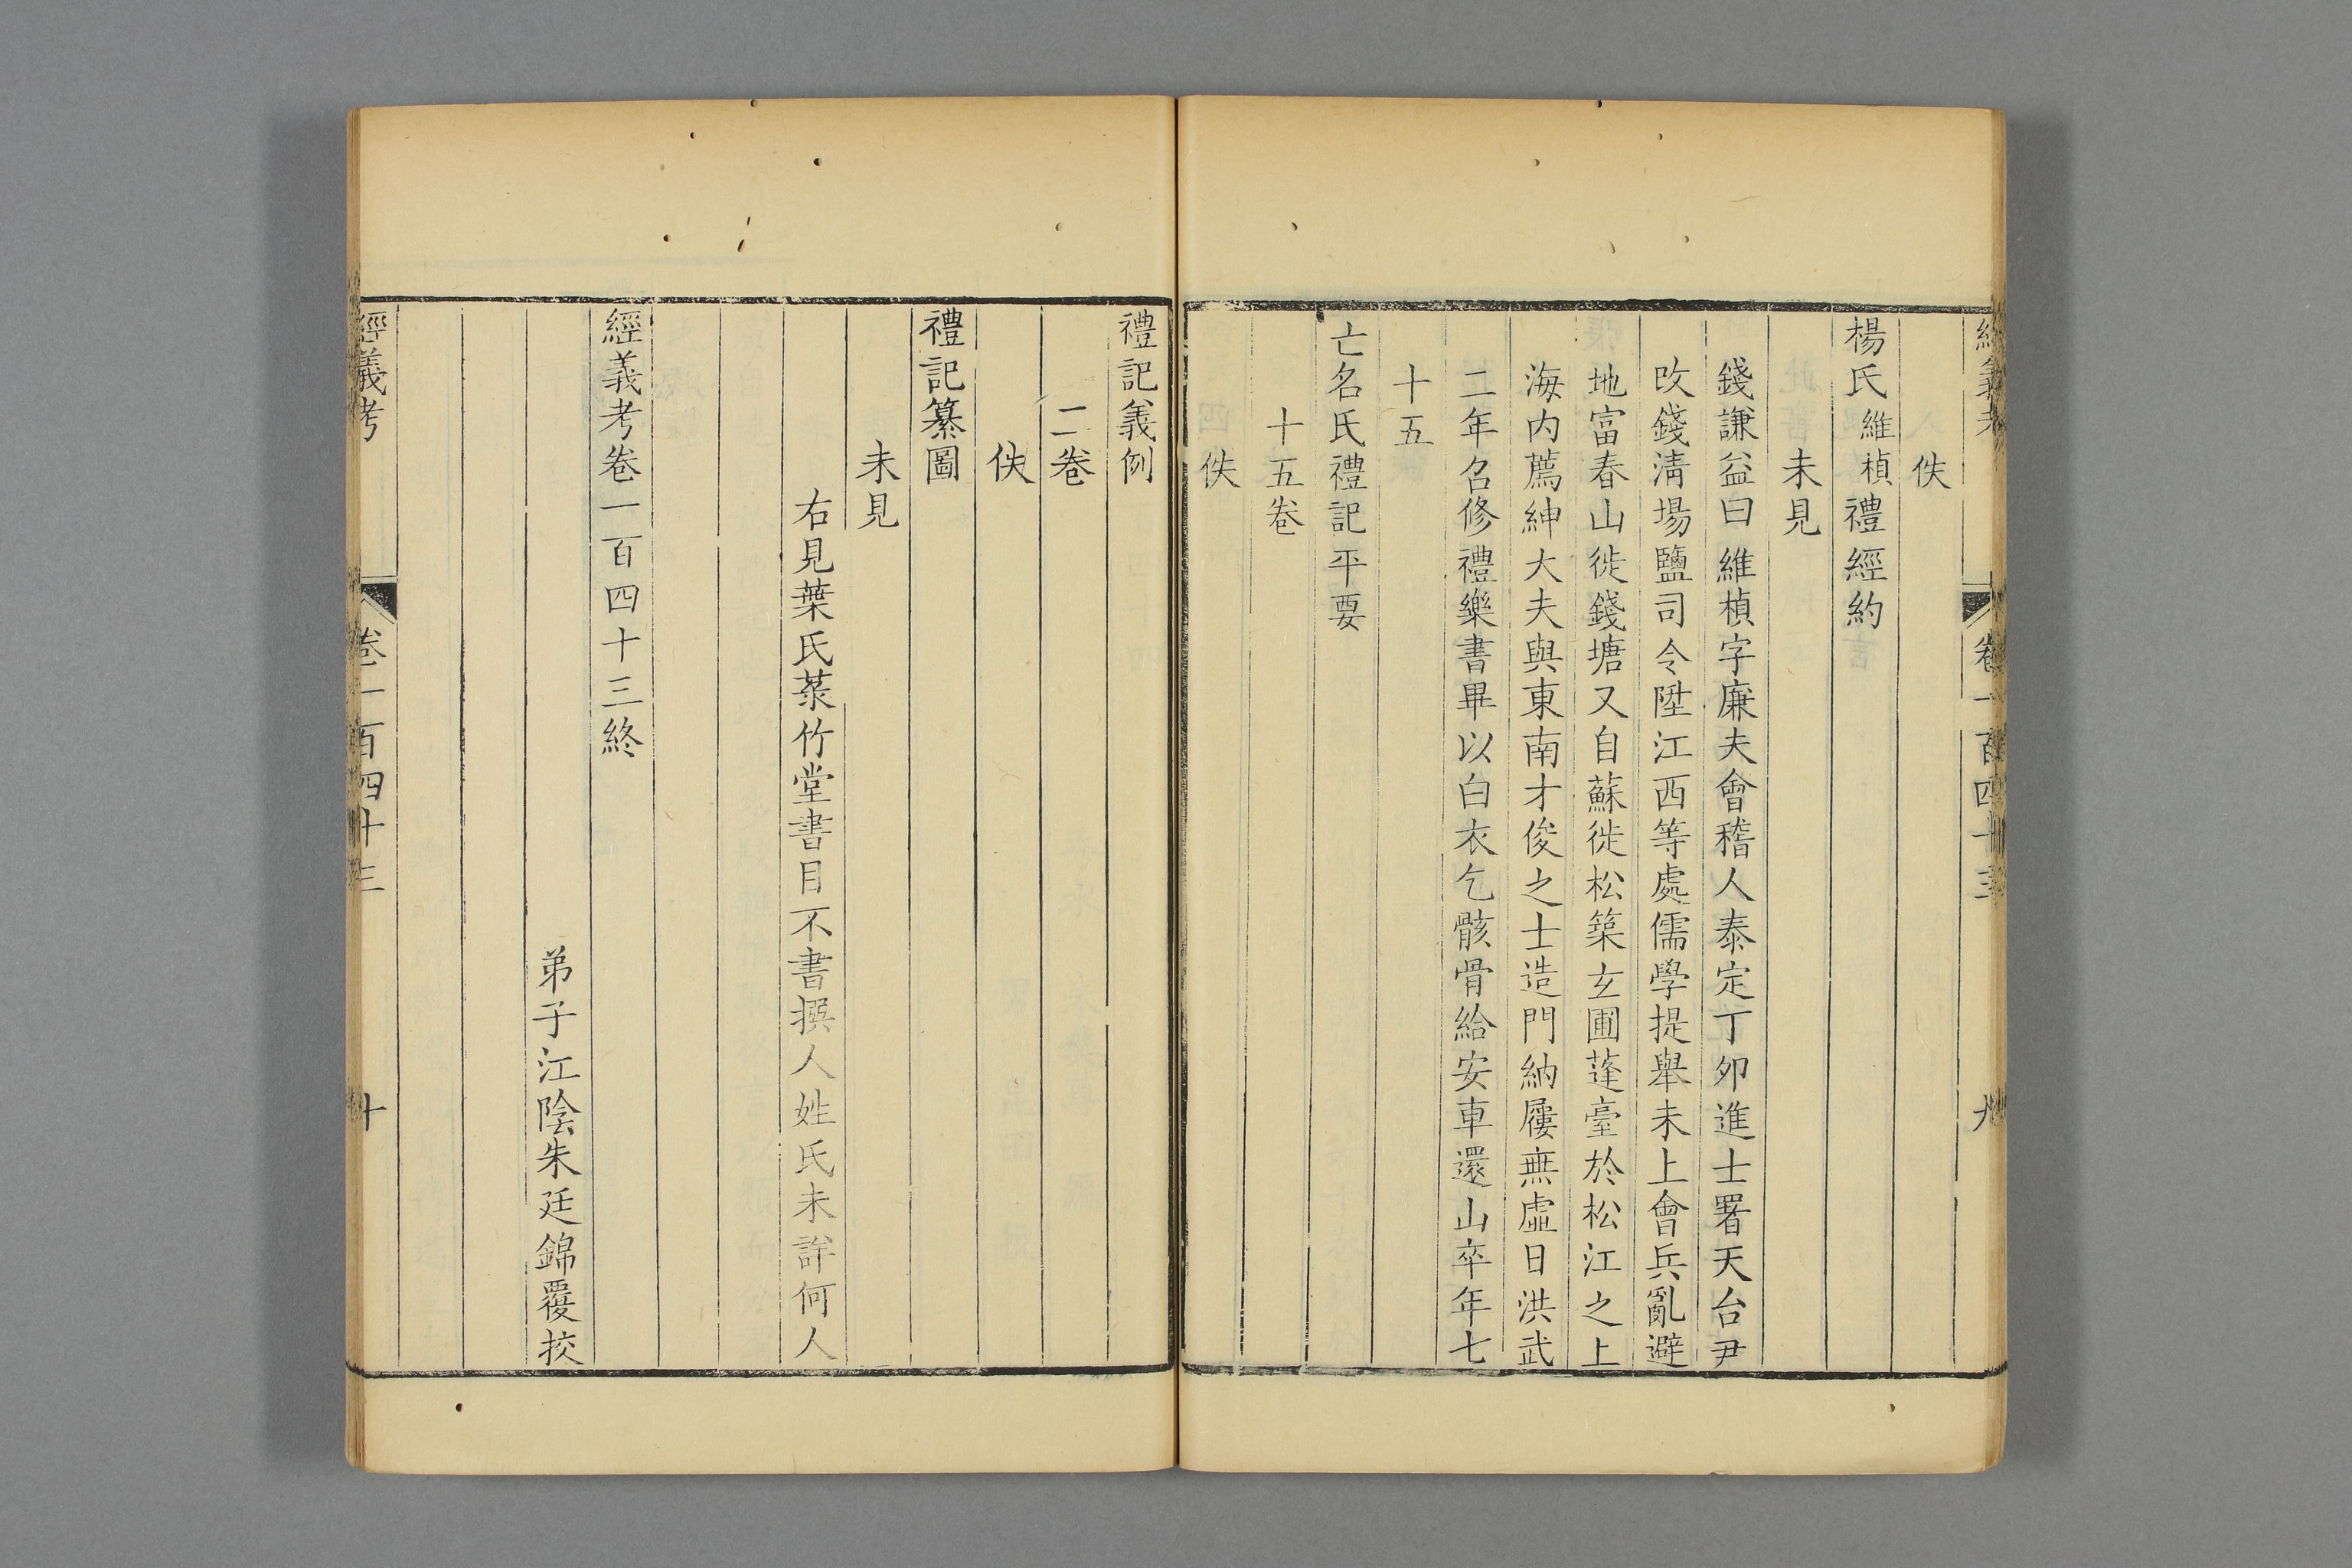 經義考
卷一百四十三
九
佚
楊氏維楨禮經約
未見
錢謙益曰維楨字廉夫會稽人泰定丁夘進士署天台尹
改錢淸場鹽司令陞江西等處儒學提舉未上會兵亂避
地富春山徙錢塘又自蘇徙松築玄圃蓬臺於松江之上
海内薦紳大夫與東南才俊之士造門納屨無虛日洪武
二年召修禮樂書畢以白衣乞骸骨給安車還山卒年七
十五
亡名氏禮記平要
十五卷
佚
禮記義例
二卷
佚
禮記纂圖
未見
右見葉氏菉竹堂書目不書撰人姓氏未詳何人
經義考卷一百四十三終
弟子江陰朱廷錦覆挍
經義考
卷一百四十三
十